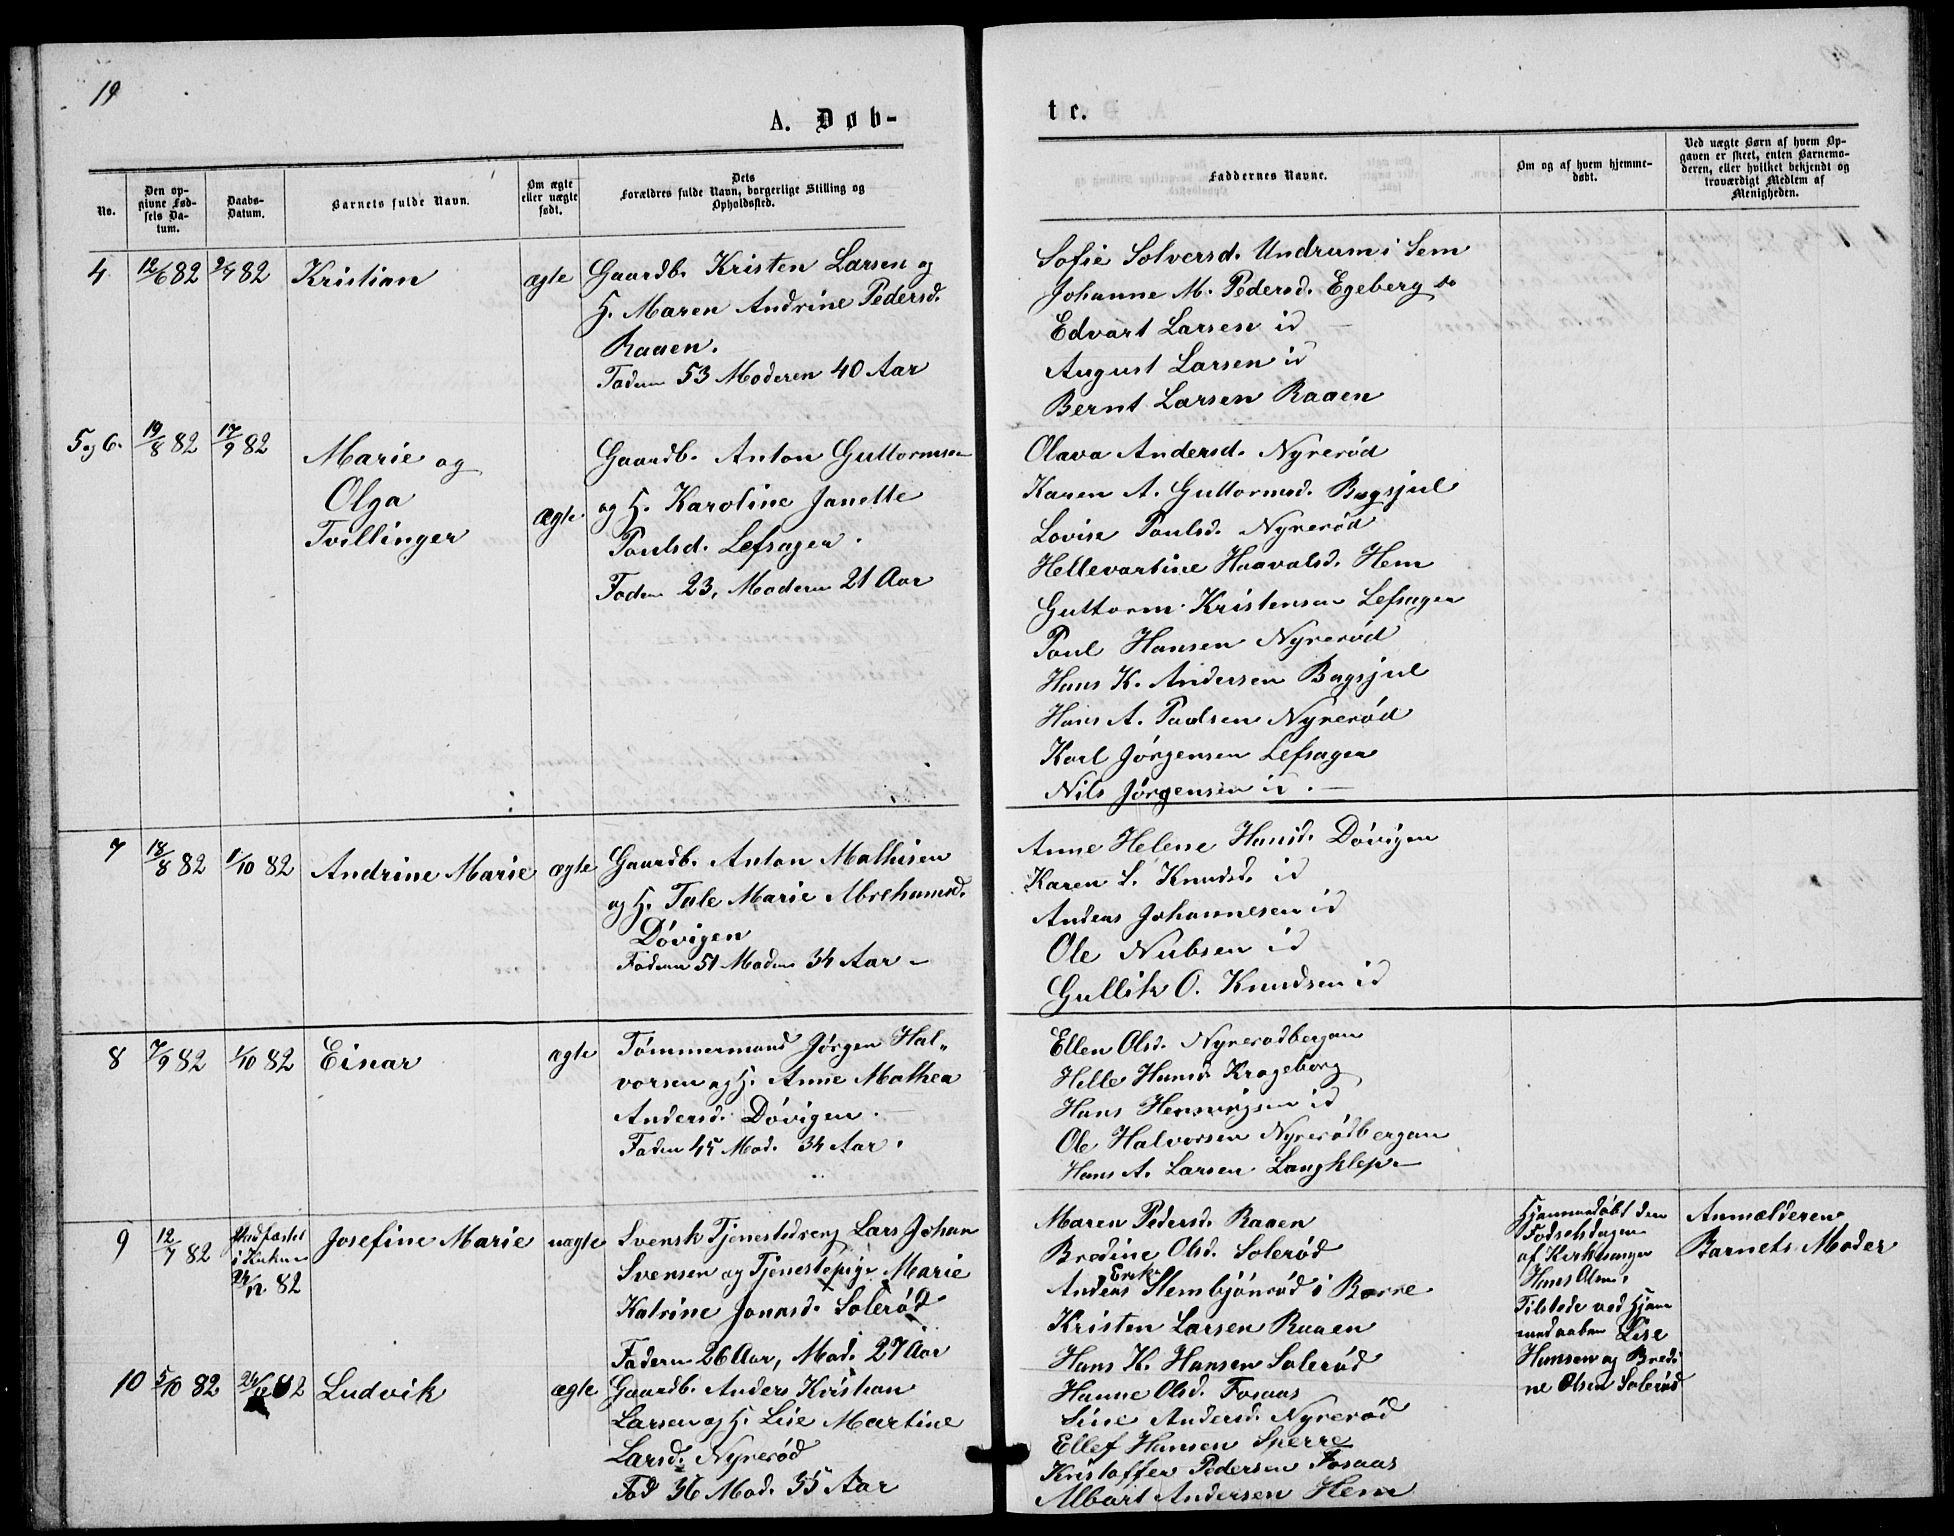 19
A. Døb-
No.
Den op-
givne Fød-
sels Da-
tum.
Daabs-
Datum.
Barnets fulde Navn.
Om ægte
eller uægte
født.
Dets
Forældres fulde Navn, borgerlige Stilling og
Opholdssted.
4. 12/6 82 2/7 82 Kristian ægte Gaardb. Kristen Larsen og
H. Maren Andrine Pedersd.
Raaen.
Faderen 53 Moderen 40 Aar
5 og 6. 19/8 82 17/9 82 Marie og
Olga
Tvillinger
ægte.
Gaardb. Anton Guttormsen
og H. Karoline Janette
Poulsd. Lefsager.
Faderen 23, Moderen 21 Aar
7 18/8 82 1/10 82 Andrine Marie ægte Gaardb. Anton Mathisen
og H. Tale Marie Abrehamsd.
Døvigen
Faderen 51 Moderen 34 Aar –
8 7/9 82 1/10 82 Einar ægte Tømmermand Jørgen Hal-
vorsen og H. Anne Mathea
Andersd. Døvigen.
Faderen 45 Mod. 34 Aar.
9 12/7 82 Stadfæstet
i Kirken
24/12 82
Josefine Marie uægte Svensk Tjenestedreng Lars Johan
Svensen og Tjenestepige Marie
Katrine Jonasd. Solerød
Faderen 26 Aar, Mod. 27 Aar
10 5/10 82 Ludvik ægte Gaardb. Anders Kristian
Larsen og H. Lise Martine
Larsd. Nyrerød
Fad 36 Mod. 35 Aar
te.
Faddernes Navne.
Om og af hvem hjemme-
døbt.
Ved uægte Børn af hvem Op-
gaven er skeet, enten Barnemo-
deren, eller hvilket bekjendt og
troværdigt Medlem af
Menigheden.
Sofie Solversd. Undrum i Sem
Johanne M. Pedersd. Egeberg
Edvart Larsen id
August Larsen id
Bernt Larsen Raaen
Olava Andersd. Nyrerød
Karen A. Guttormsd. Bogsjul
Lovise Poulsd. Nyrerød
Hellevartine Haavalsd. Hem
Guttorm Kristensen Lefsager
Poul Hansen Nyrerød
Hans K. Andersen Bogsjul
Hans A. Paulsen Nyrerød
Karl Jørgensen Lefsager
Nils Jørgensen id. –
Anne Helene Hansd. Døvigen
Karen L. Knudsd. id
Anders Johannesen id
Ole Nubsen id
Gullik O. Knudsen id
Ellen Olsd. Nyrerødbergan
Helle Hansd. Krageborg
Hans Henningsen id
Ole Halvorsen Nyrerødbergan
Hans A. Larsen Langklep –
Maren Pedersd. Raaen
Bredine Olsd. Solerød
Anders Erik. Stenbjønrød i Borre
Kristen Larsen Raaen
Hans K. Hansen Solerød
Hjemmedøbt den
Fødselsdagen
af Kirkesanger
Hans Olsen.
Tilstede ved Hjem
medaaben Lise
Hansen og Bredi
ne Olsen Solerød
Anmelderen
Barnets Moder
Hanne Olsd. Fosaas
Sine Andersd. Nyrerød
Ellef Hansen Sperre
Kristoffer Pedersen Fosaas
Albart Andersen Hem